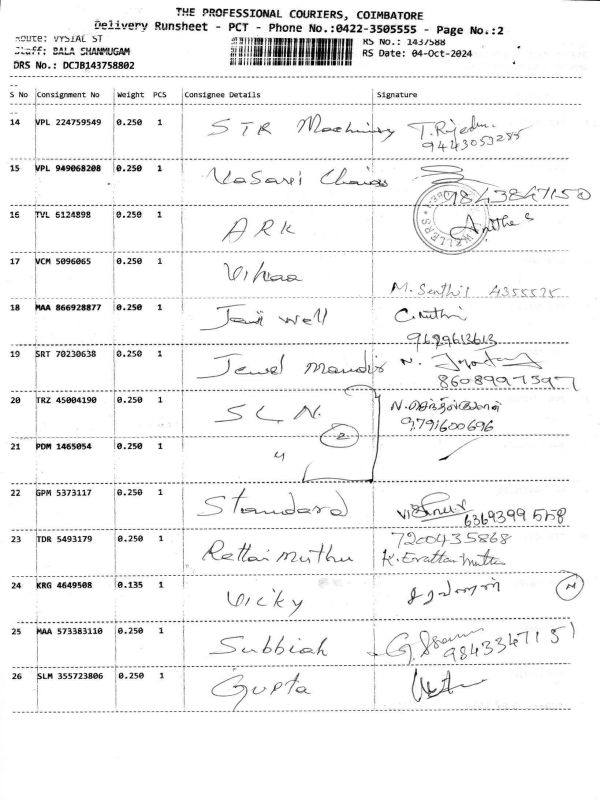 THE PROFESSIONAL COURIERS, COIMBATORE
Delivery Runsheet - PCT - Phone No.:0422-3505555 - Page No.:2
Route: VYSIAL ST
Staff: BALA SHANMUGAM
DRS No.: DCJB143758802
RS No.: 1437588
RS Date: 04-Oct-2024
S No Consignment No Weight PCS Consignee Details Signature
14 VPL 224759549 0.250 1 STR Machinery
9443053285
15 VPL 949068208 0.250 1
9843847150
16 TVL 6124898 0.250 1 ARK
17 VCM 5096065 0.250 1 Vihaa M. Senthil 4355525
18 MAA 866928877 0.250 1 Well
9629613613
19 SRT 70230638 0.250 1 Jewel Mandir N.
8608997597
20 TRZ 45004190 0.250 1 S.L.N. N.
9791600696
21 PDM 1465054 0.250 1 4 2
22 GPM 5373117 0.250 1 Standard
6369399558
23 TDR 5493179 0.250 1 Rettai Muthu 7200435868
K. Erattai Muttu
24 KRG 4649508 0.135 1 Vicky சரவணன்
25 MAA 573383110 0.250 1 Subbiah G.
9843347151
26 SLM 355723806 0.250 1 Gupta